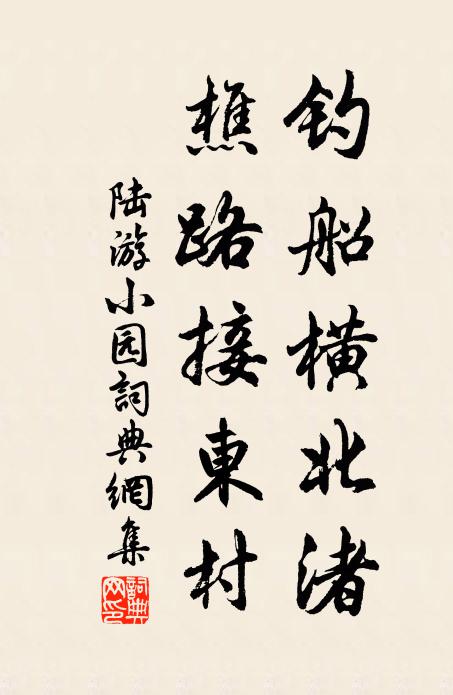 钓船橫北渚
樵路接東村
陆游小园詞典網集
詞典网印